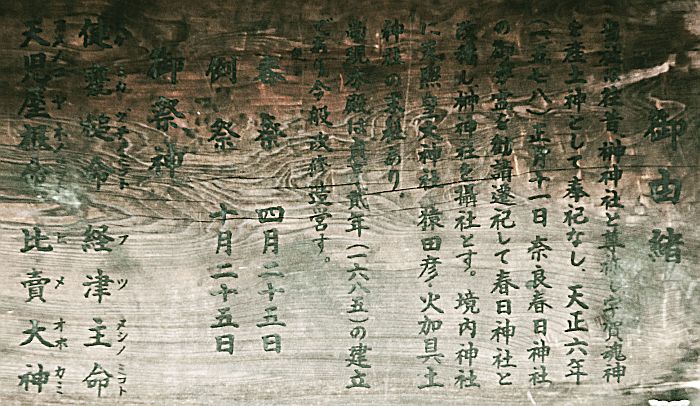 御由緒
当社は往昔榊神社と尊称し宇賀魂神
を産土神として奉祀なし、天正六年
(一五七八)正月十一日奈良春日神社
の御分霊を勧請遷祀して春日神社と
改称し榊神社を摂社とす。境内神社
に天照皇大神社・猿田彦・火加具土
神社の末社あり
尚現本殿は貞享貳年(一六八五)の建立
であり今般改修造営す。
春祭 四月二十五日
例祭 十月二十五日
御祭神
健甕槌命 経津主命 フツヌシノミコト
天児屋根命 比賣大神 ヒメオホカミ